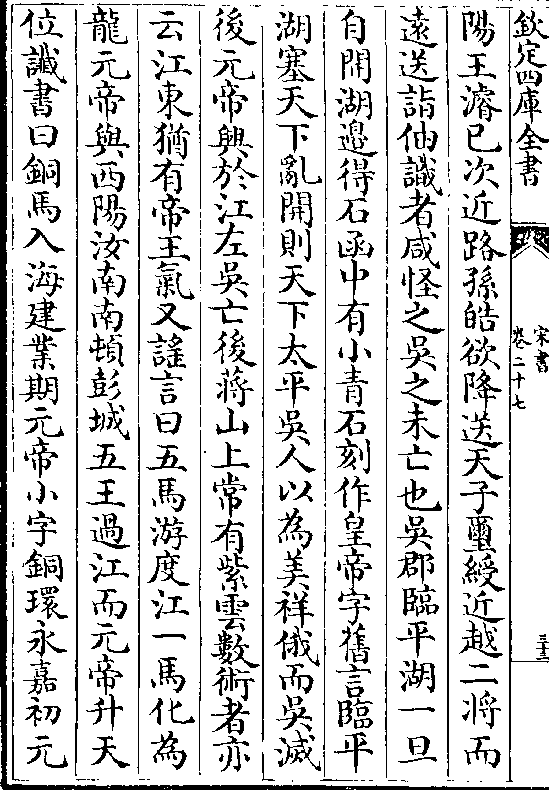 欽定四庫全書
宋書
卷二十七
三十二
陽王濬已次近路孫皓欲降送天子璽綬近越二將而
遠送詣伷識者咸怪之吳之未亡也吳郡臨平湖一旦
自開湖邉得石函中有小青石刻作皇帝字舊言臨平
湖塞天下亂開則天下太平吳人以為美祥俄而吳滅
後元帝興於江左吳亡後蔣山上常有紫雲數術者亦
云江東猶有帝王氣又謡言曰五馬游度江一馬化為
龍元帝與西陽汝南南頓彭城五王過江而元帝升天
位讖書曰銅馬入海建業期元帝小字銅環永嘉初元